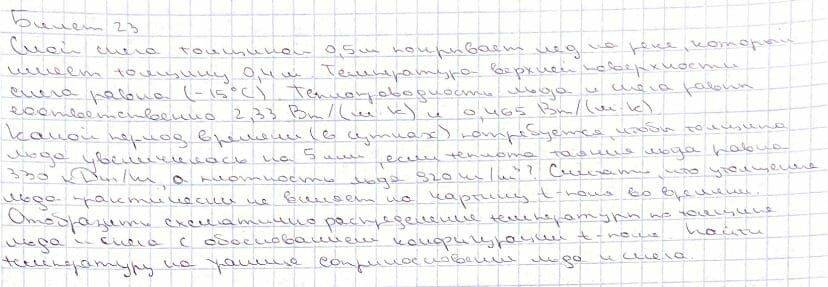 Билет 23
Слой снега толщиной 0,5м покрывает лед на реке, который
имеет толщину 0,4м. Температура верхней поверхности
снега равна (-15°С) Теплопроводность льда и снега равны
соответственно 2,33 Вт/(м·К) и 0,465 Вт/(м·К).
Какой период времени (в сутках) потребуется, чтобы толщина
льда увеличилась на 5 мм, если теплота таяния льда равна
330 кДж/м, а плотность льда 920 кг/м³? Считать, что утолщение
льда практически не влияет на картину t-поля во времени.
Отобразить схематично распределение температуры по толщине
льда и снега с обоснованием конфигурации t-поля. Найти
температуру на границе соприкосновения льда и снега.